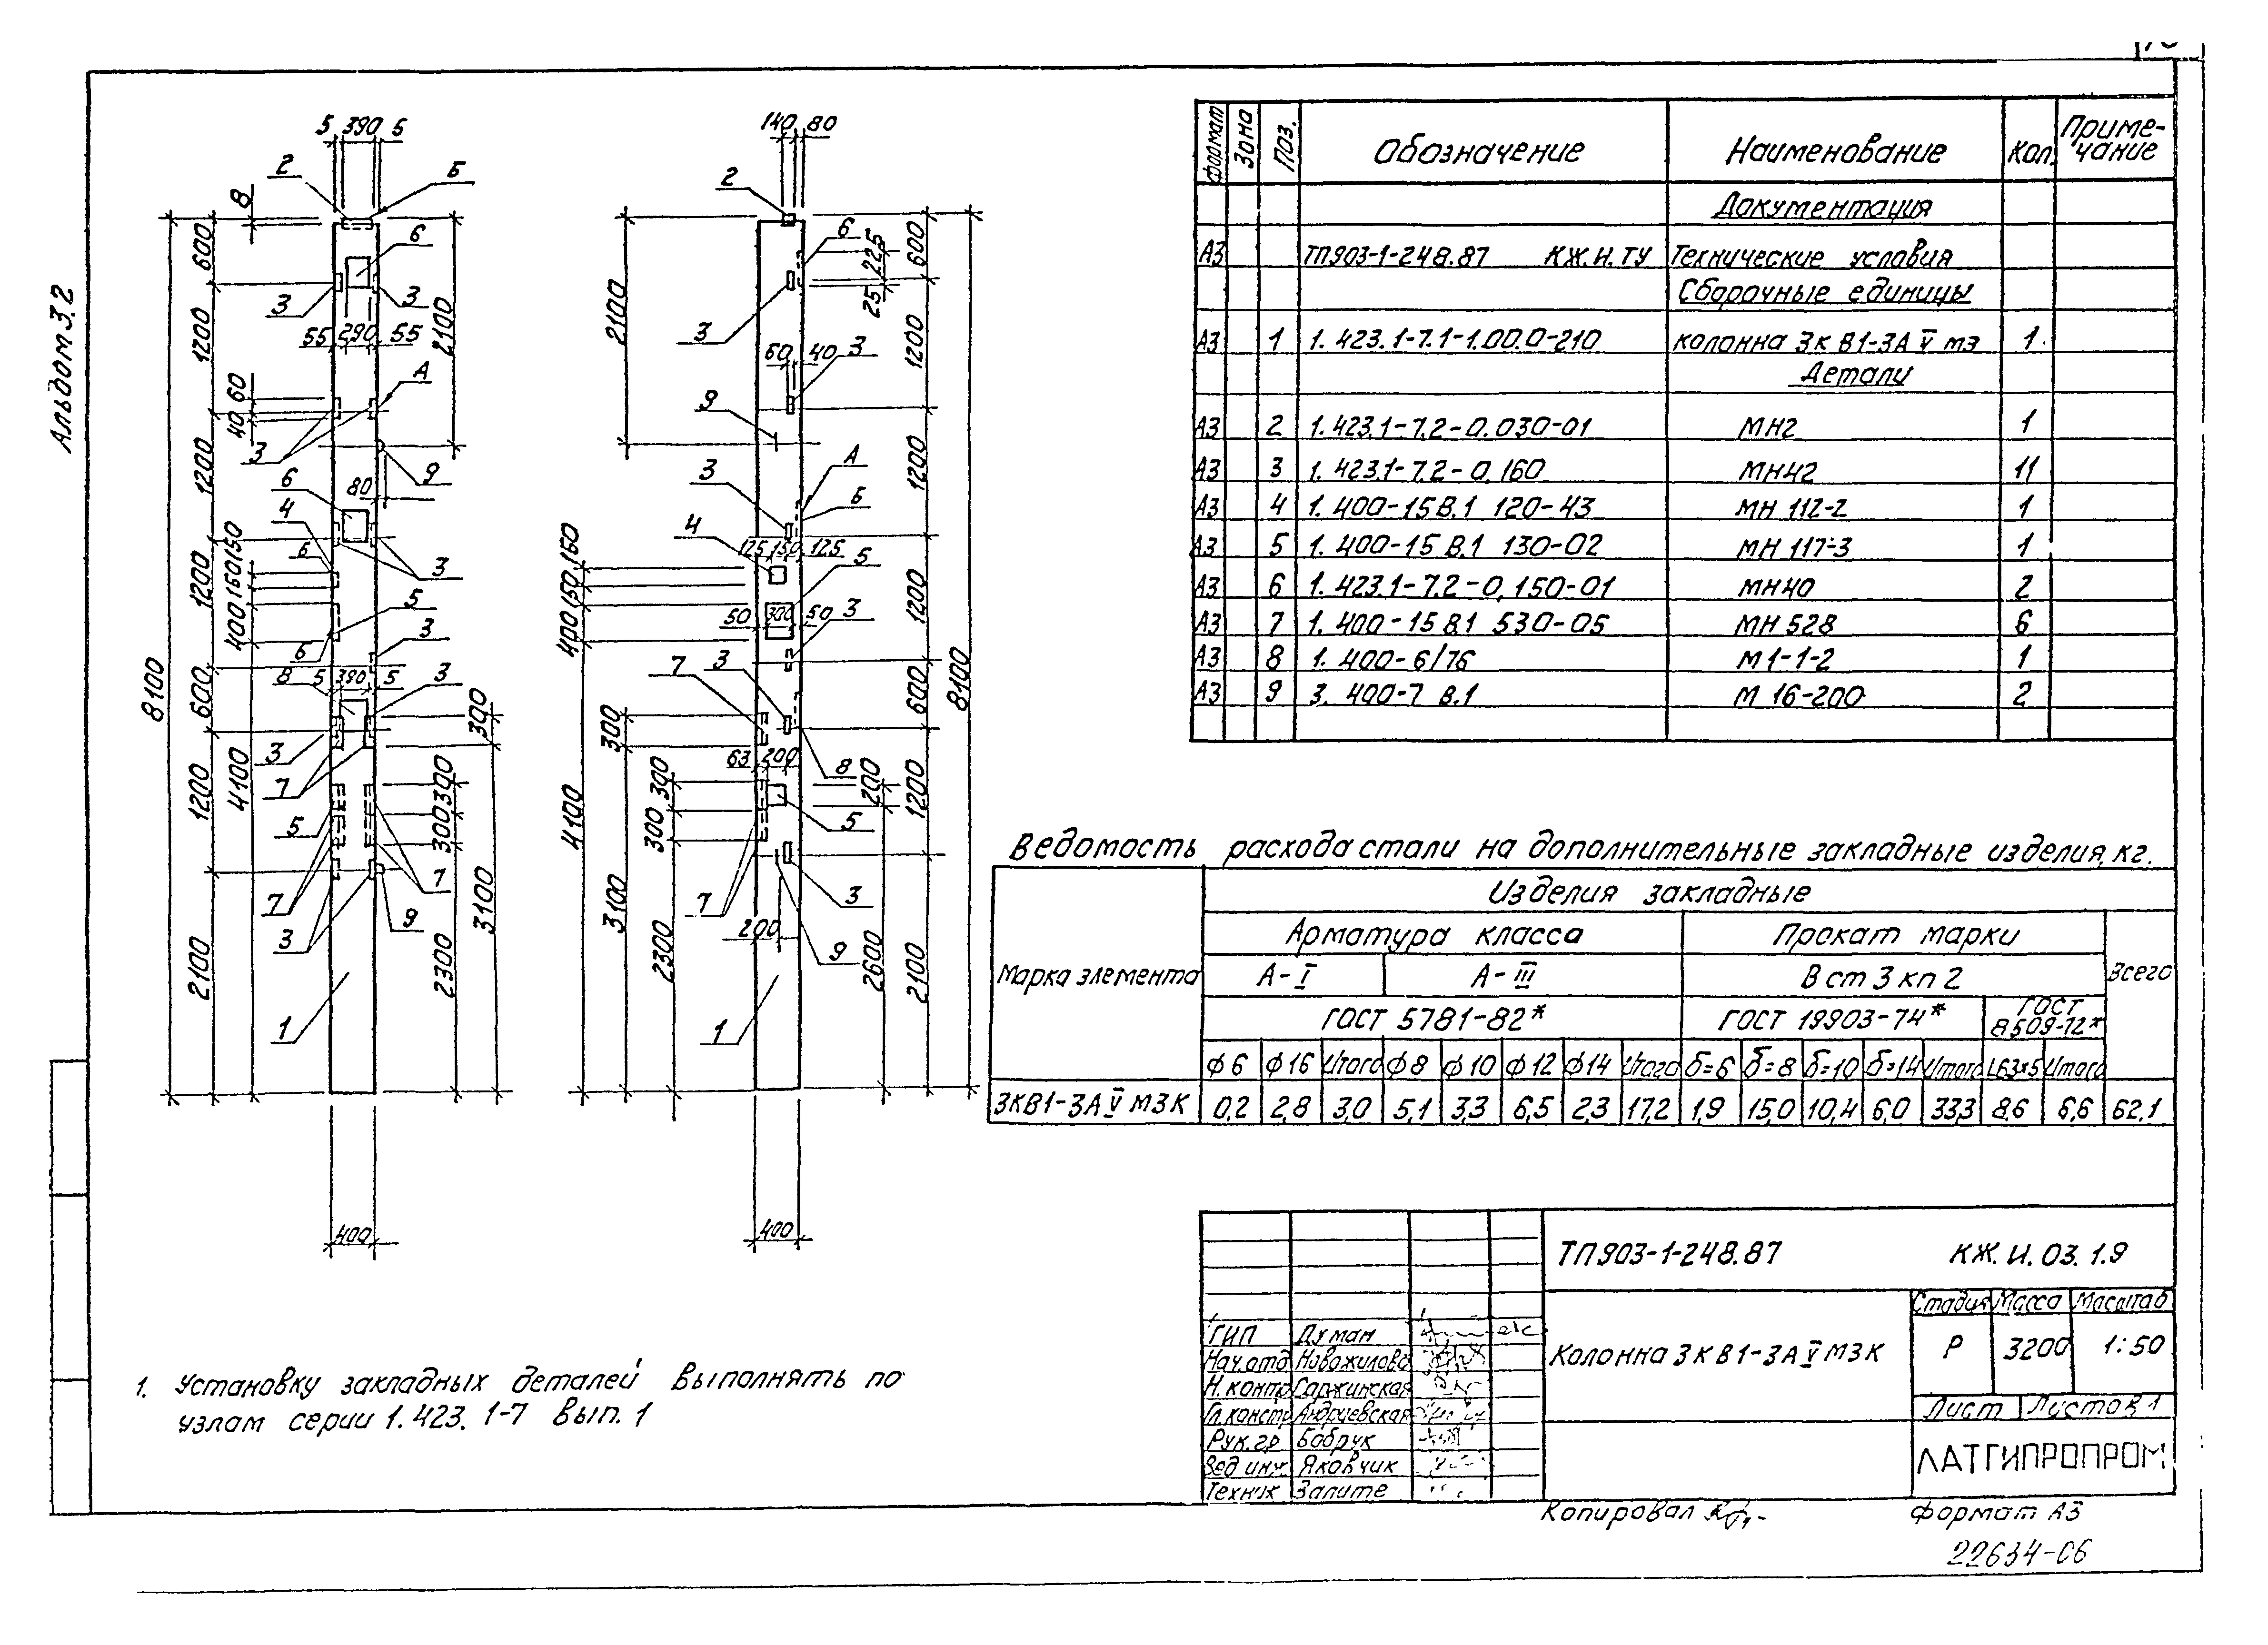 Альбом 3.2
5 390 5
2
Б
8
6
600
3
3
1200
55 290 55
2100
А
60
40
3
9
1200
6
80
4
150
150
6
3
1200
400
5
6
3
8100
600
8 5 390 5
3
300
3
4100
7
1200
5
300
300
7
7
3
9
3100
2100
2300
1
400
140 80
2
6
225
600
25
2100
3
60 40 3
1200
9
3
А
Б
1200
4
125 150 125
5
150
150
50 300 50
3
400
1200
7
3
600
8100
300
63 200
8
300
200
1200
4100
300
5
7
3
200
9
3100
2300
2600
2100
1
400
Формат Зона Поз. Обозначение Наименование Кол. Приме-
чание
Документация
А3 ТП903-1-248.87 КЖ.И.ТУ Технические условия
Сборочные единицы
А3 1 1.423.1-7.1-1.00.0-210 колонна 3к В1-3А V м3 1
Детали
А3 2 1.423.1-7.2-0.030-01 МН2 1
А3 3 1.423.1-7.2-0.160 МН42 11
А3 4 1.400-15 В.1 120-43 МН 112-2 1
А3 5 1.400-15 В.1 130-02 МН 117-3 1
А3 6 1.423.1-7.2-0.150-01 МН40 2
А3 7 1.400-15 В.1 530-05 МН 528 6
А3 8 1.400-6/76 М1-1-2 1
А3 9 3.400-7 В.1 М 16-200 2
Ведомость расхода стали на дополнительные закладные изделия, кг.
Марка элемента Изделия закладные
Арматура класса Прокат марки Всего
А-I А-III В ст 3 кп 2
ГОСТ 5781-82* ГОСТ 19903-74* ГОСТ
8509-72*
ф 6 ф 16 Итого ф 8 ф 10 ф 12 ф 14 Итого б=6 б=8 б=10 б=14 Итого L63×5 Итого
3КВ1-3А V М3К 0,2 2,8 3,0 5,1 3,3 6,5 2,3 17,2 1,9 15,0 10,4 6,0 33,3 8,6 6,6 62.1
ТП903-1-248.87 КЖ.И.03.1.9
Стадия Масса Масштаб
Колонна 3к В1-3А V М3К Р 3200 1:50
Лист Листов 1
ЛАТГИПРОПРОМ
ГИП Думан
Нач.отд Новожилова
Н.контр Саржинская
Гл.констр Андриевская
Рук.гр Бобрук
Вед инж. Яковчик
Техник Залите
1. Установку закладных деталей выполнять по
узлам серии 1.423.1-7 вып.1
Копировал Формат А3
22634-06